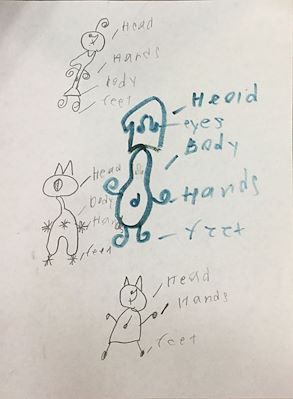 Head
Hands
body
feet
Heaid
eyes
Body
Hands
reet
Head
body
Hand
feet
Head
Hands
feet